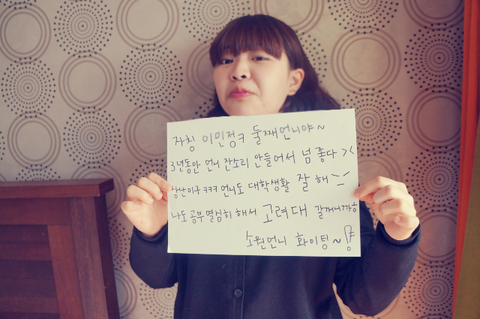 자칭 이민정ㅋ 둘째언니야~
3년동안 언니 잔소리 안들어서 넘 좋다 ><
장난이구 ㅋㅋㅋ 언니도 대학생활 잘해
나도 공부 열심히 해서 고려대 갈꺼니까
소원언니 화이팅~!